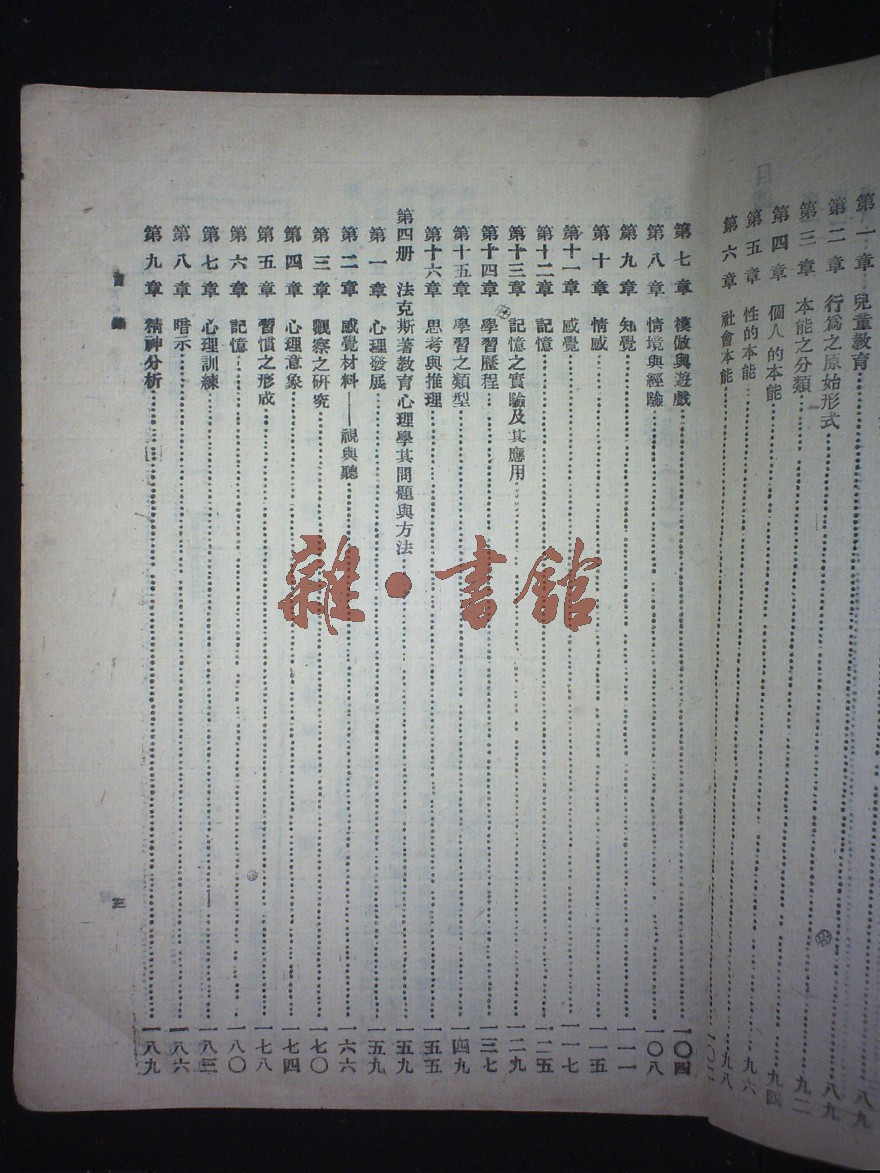 第一章 兒童教育 八九
第二章 行為之原始形式 八九
第三章 本能之分類 九二
第四章 個人的本能 九四
第五章 性的本能 九六
第六章 社會本能 九八
第七章 模倣與遊戲 一〇四
第八章 情境與經驗 一〇八
第九章 知覺 一一一
第十章 情感 一一五
第十一章 感覺 一一七
第十二章 記憶 一二五
第十三章 記憶之實驗及其應用 一二九
第十四章 學習歷程 一三七
第十五章 學習之類型 一四九
第十六章 思考與推理 一五五
第四册 法克斯著教育心理學其問題與方法 一五九
第一章 心理發展 一五九
第二章 感覺材料——視與聽 一六六
第三章 觀察之研究 一七〇
第四章 心理意象 一七四
第五章 習慣之形成 一七八
第六章 記憶 一八〇
第七章 心理訓練 一八三
第八章 暗示 一八六
第九章 精神分析 一八九
目錄
三
雜·書館